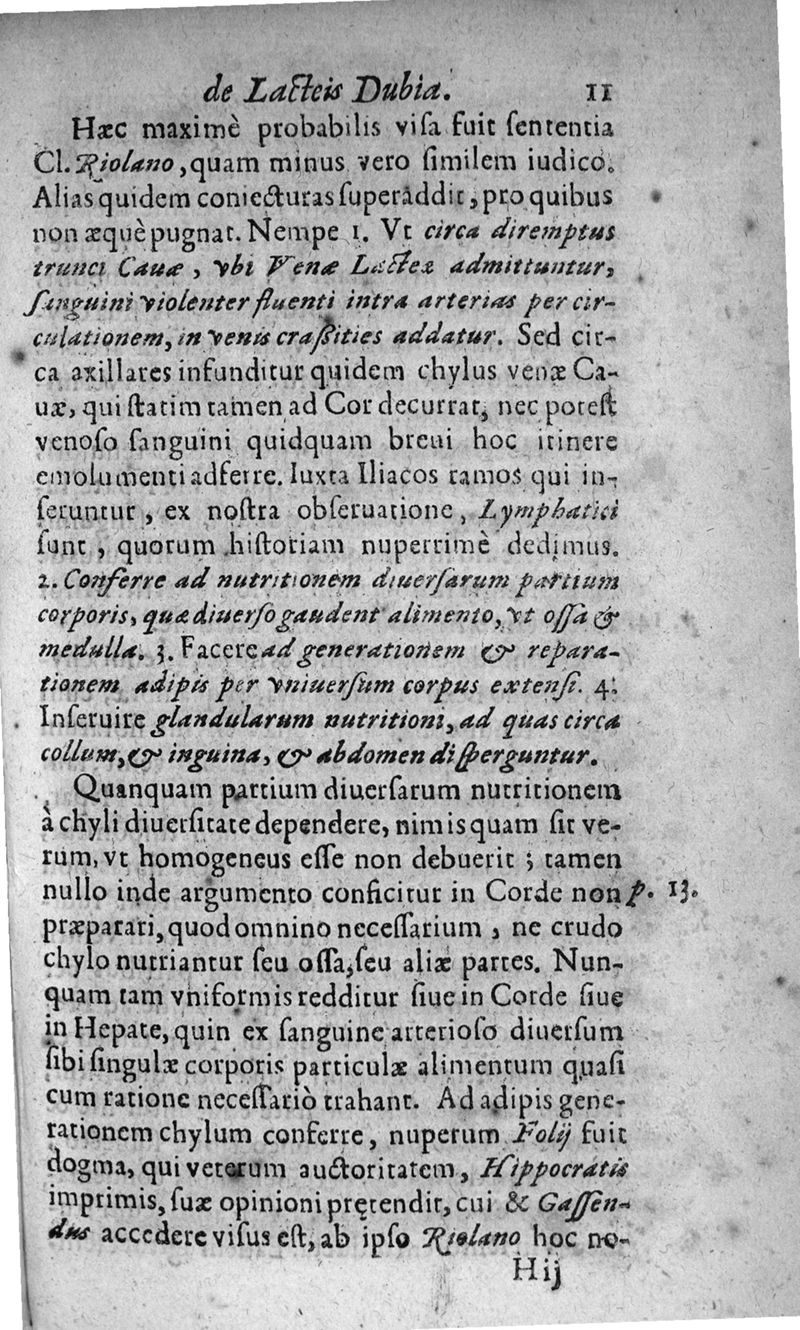 de Lacteis Dubia. 11
Hæc maximè probabilis visa fuit sententia
Cl. Riolano, quam minus vero similem iudico.
Alias quidem coniecturas superaddit, pro quibus
non æquè pugnat. Nempe 1. Vt circa diremptus
trunci Cauæ, vbi Venæ Lacteæ admittuntur,
sanguini violenter fluenti intra arterias per cir-
culationem, in venis crassities addatur. Sed cir-
ca axillares infunditur quidem chylus venæ Ca-
uæ, qui statim tamen ad Cor decurrat, nec potest
venoso sanguini quidquam breui hoc itinere
emolumenti adferre. Iuxta Iliacos ramos qui in-
seruntur, ex nostra obseruatione, Lymphatici
sunt, quorum historiam nuperrimè dedimus.
2. Conferre ad nutritionem diuersarum partium
corporis, quæ diuerso gaudent alimento, vt ossa &
medulla. 3. Facere ad generationem & repara-
tionem adipis per vniuersum corpus extensi. 4.
Inseruire glandularum nutritioni, ad quas circa
collum, & inguina, & abdomen disperguntur.
Quanquam partium diuersarum nutritionem
à chyli diuersitate dependere, nimis quam sit ve-
rum, vt homogeneus esse non debuerit; tamen
nullo inde argumento conficitur in Corde non p. 13.
præparari, quod omnino necessarium, ne crudo
chylo nutriantur seu ossa, seu aliæ partes. Nun-
quam tam vniformis redditur siue in Corde siue
in Hepate, quin ex sanguine arterioso diuersum
sibi singulæ corporis particulæ alimentum quasi
cum ratione necessariò trahant. Ad adipis gene-
rationem chylum conferre, nuperum Folij fuit
dogma, qui veterum auctoritatem, Hippocratis
imprimis, suæ opinioni prętendit, cui & Gassen-
dus accedere visus est, ab ipso Riolano hoc no-
Hij